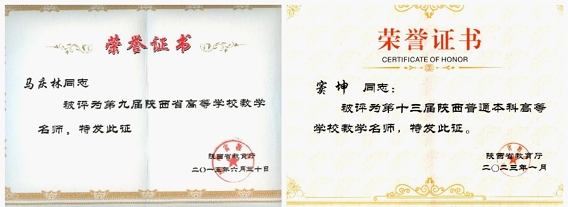 荣誉证书
马庆林同志
被评为第九届陕西省高等学校教学
名师，特发此证
陕西省教育厅
二〇一三年六月三十日
荣誉证书
CERTIFICATE OF HONOR
窦 坤 同志：
被评为第十三届陕西普通本科高等
学校教学名师，特发此证。
陕西省教育厅
二〇二三年一月